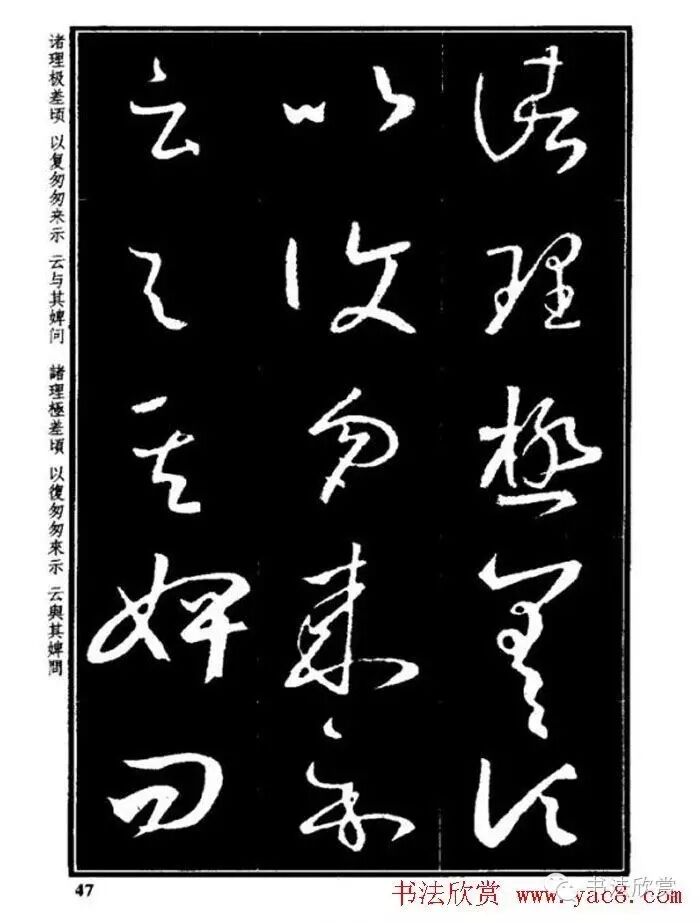 諸理極差頃
以復匆來示
云與其婢問
诸理极差顷 以复匆匆来示 云与其婢问 諸理極差頃 以復匆匆來示 云與其婢問
47
书法欣赏 www.yac8.com
书法欣赏